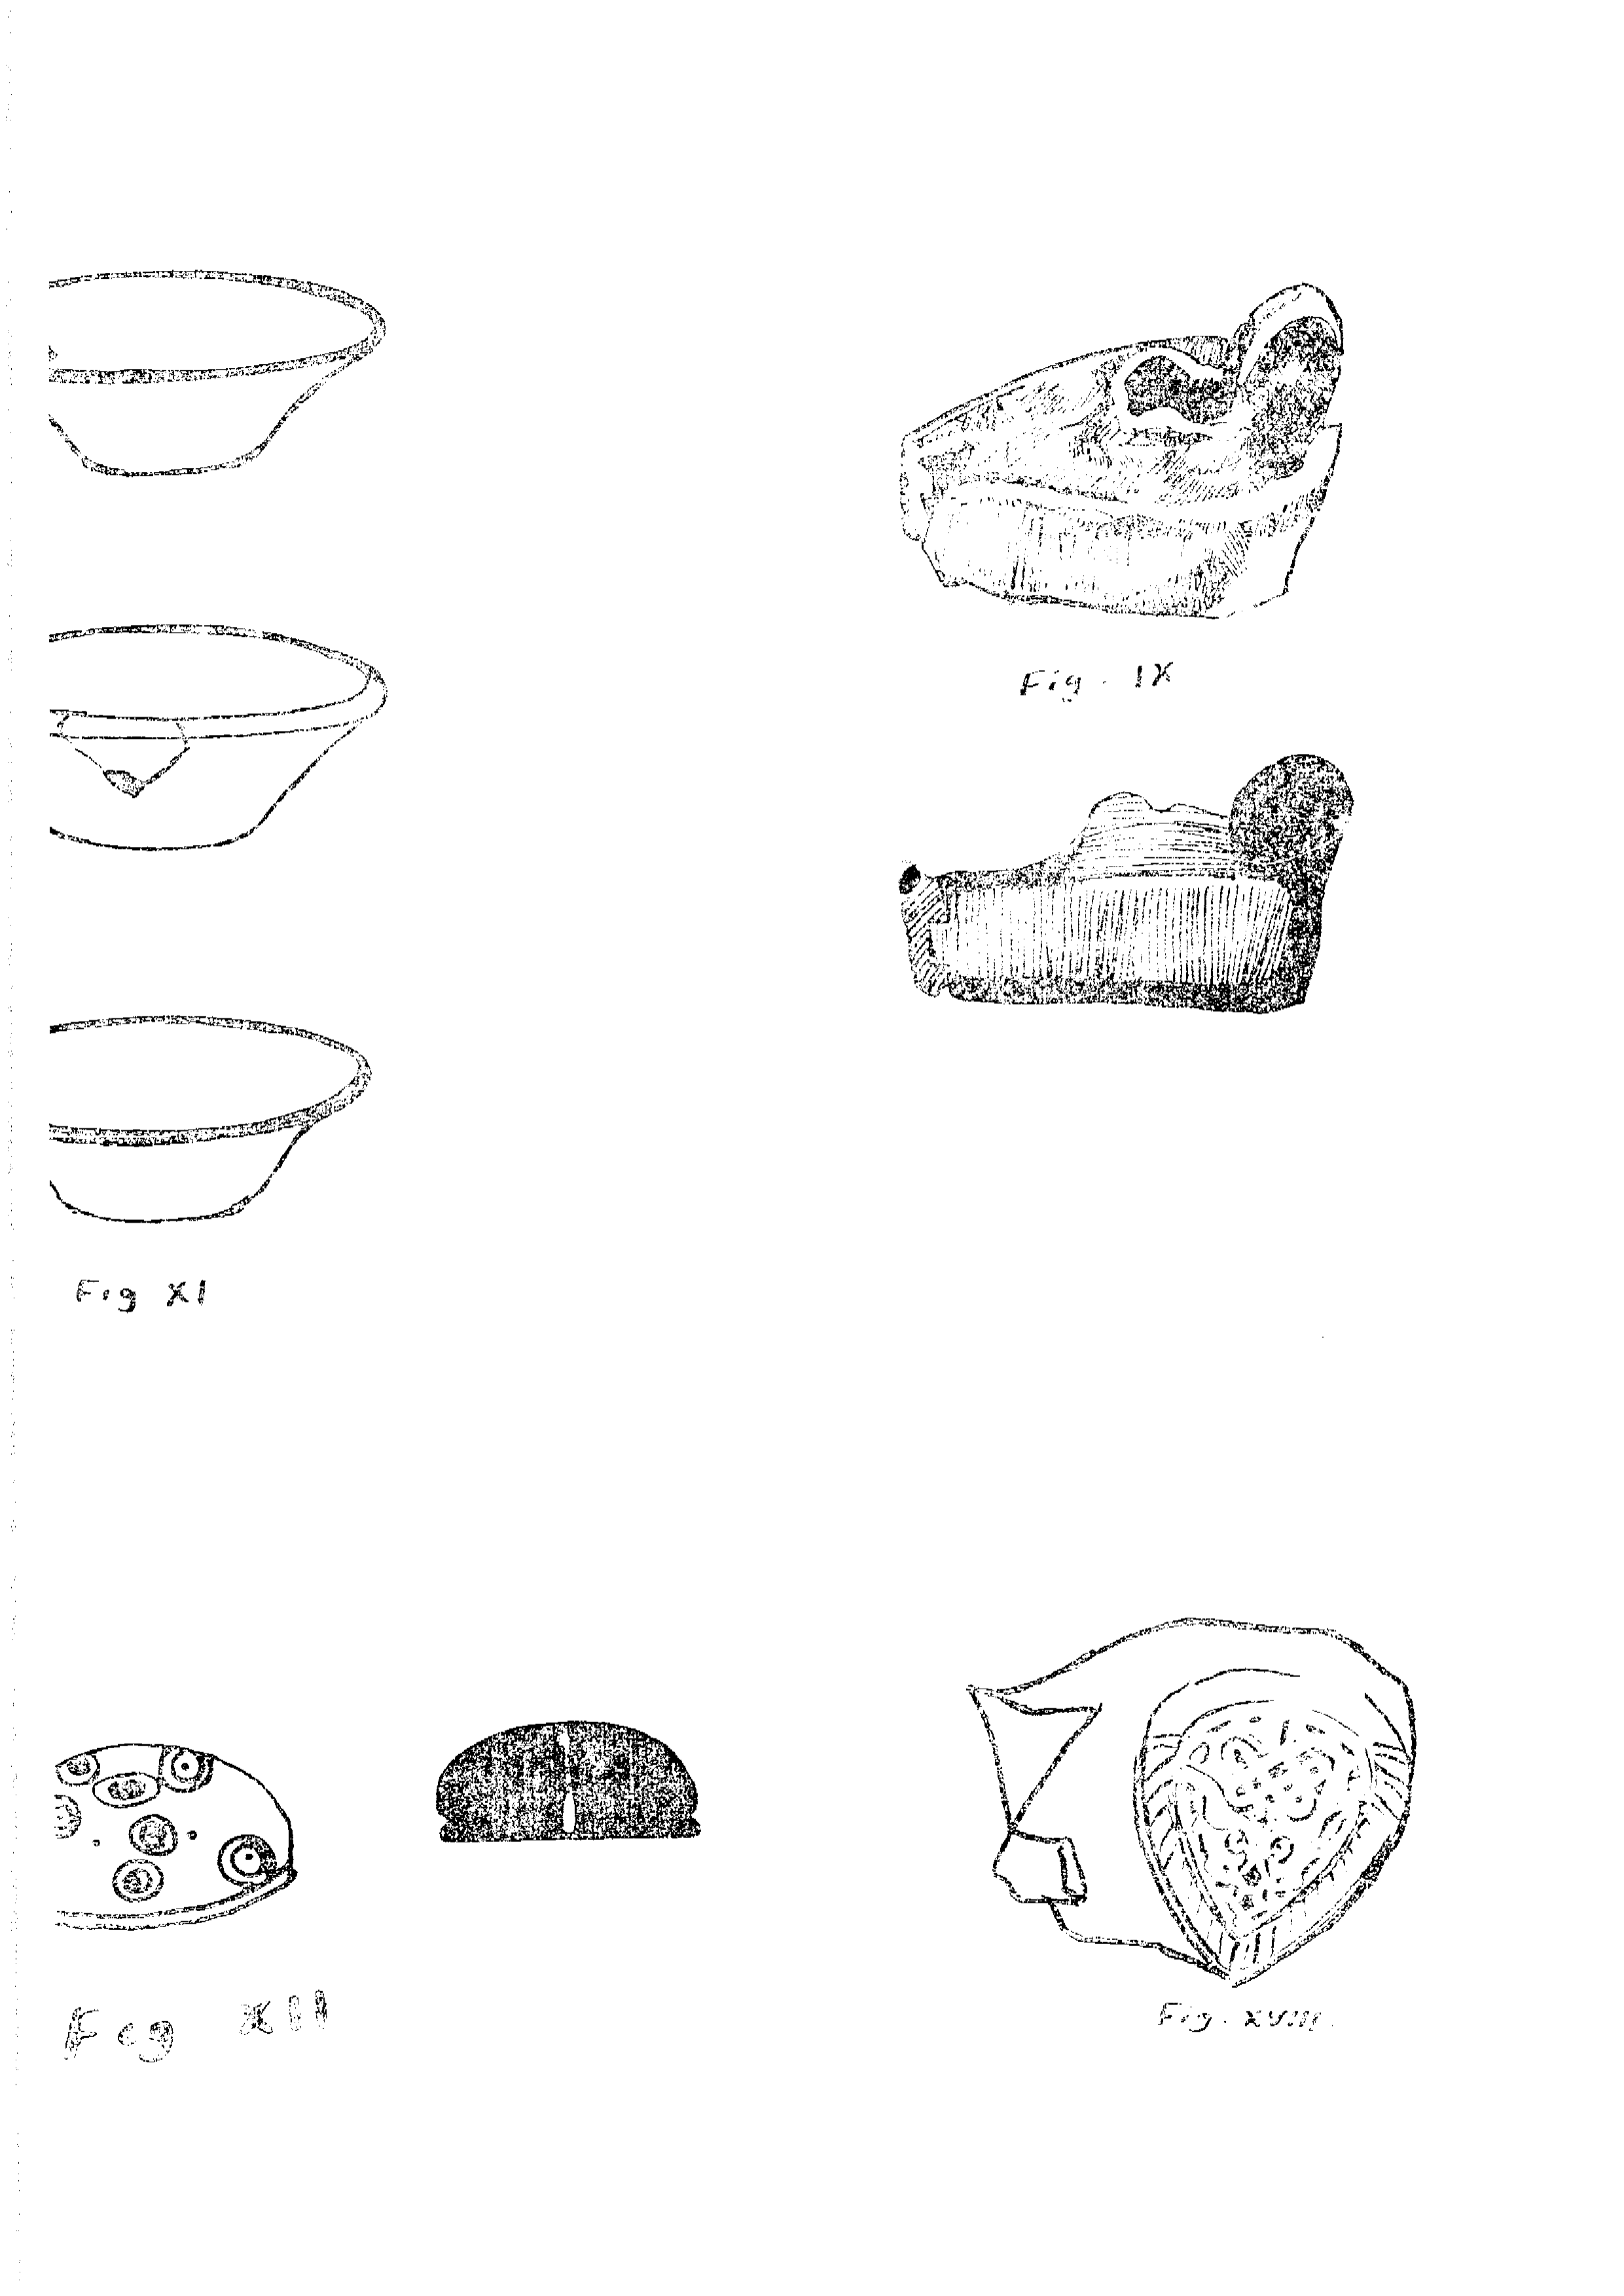 Fig . IX
Fig XI
Fig XII
Fig. XVIII.